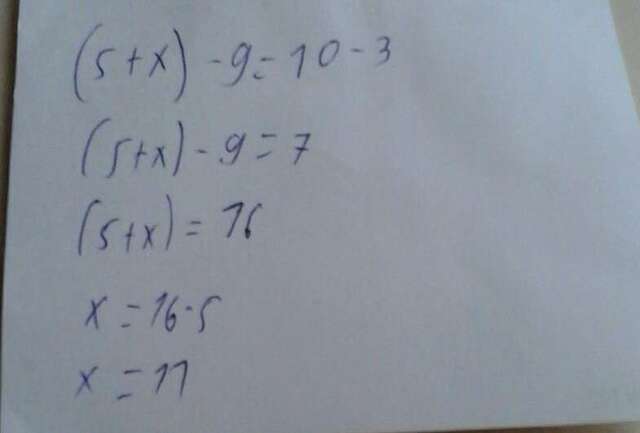 (5+x) - 9 = 10 - 3
(5+x) - 9 = 7
(5+x) = 16
x = 16-5
x = 11